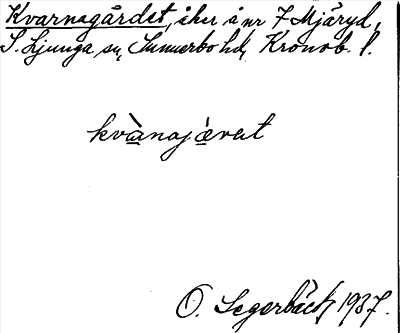 Kvarnagärdet, åker å nr 7 Mjäryd,
S. Ljunga sn, Sunnerbo hd, Kronob. l.
kvànajǽrat
O. Segerbäck 1937.